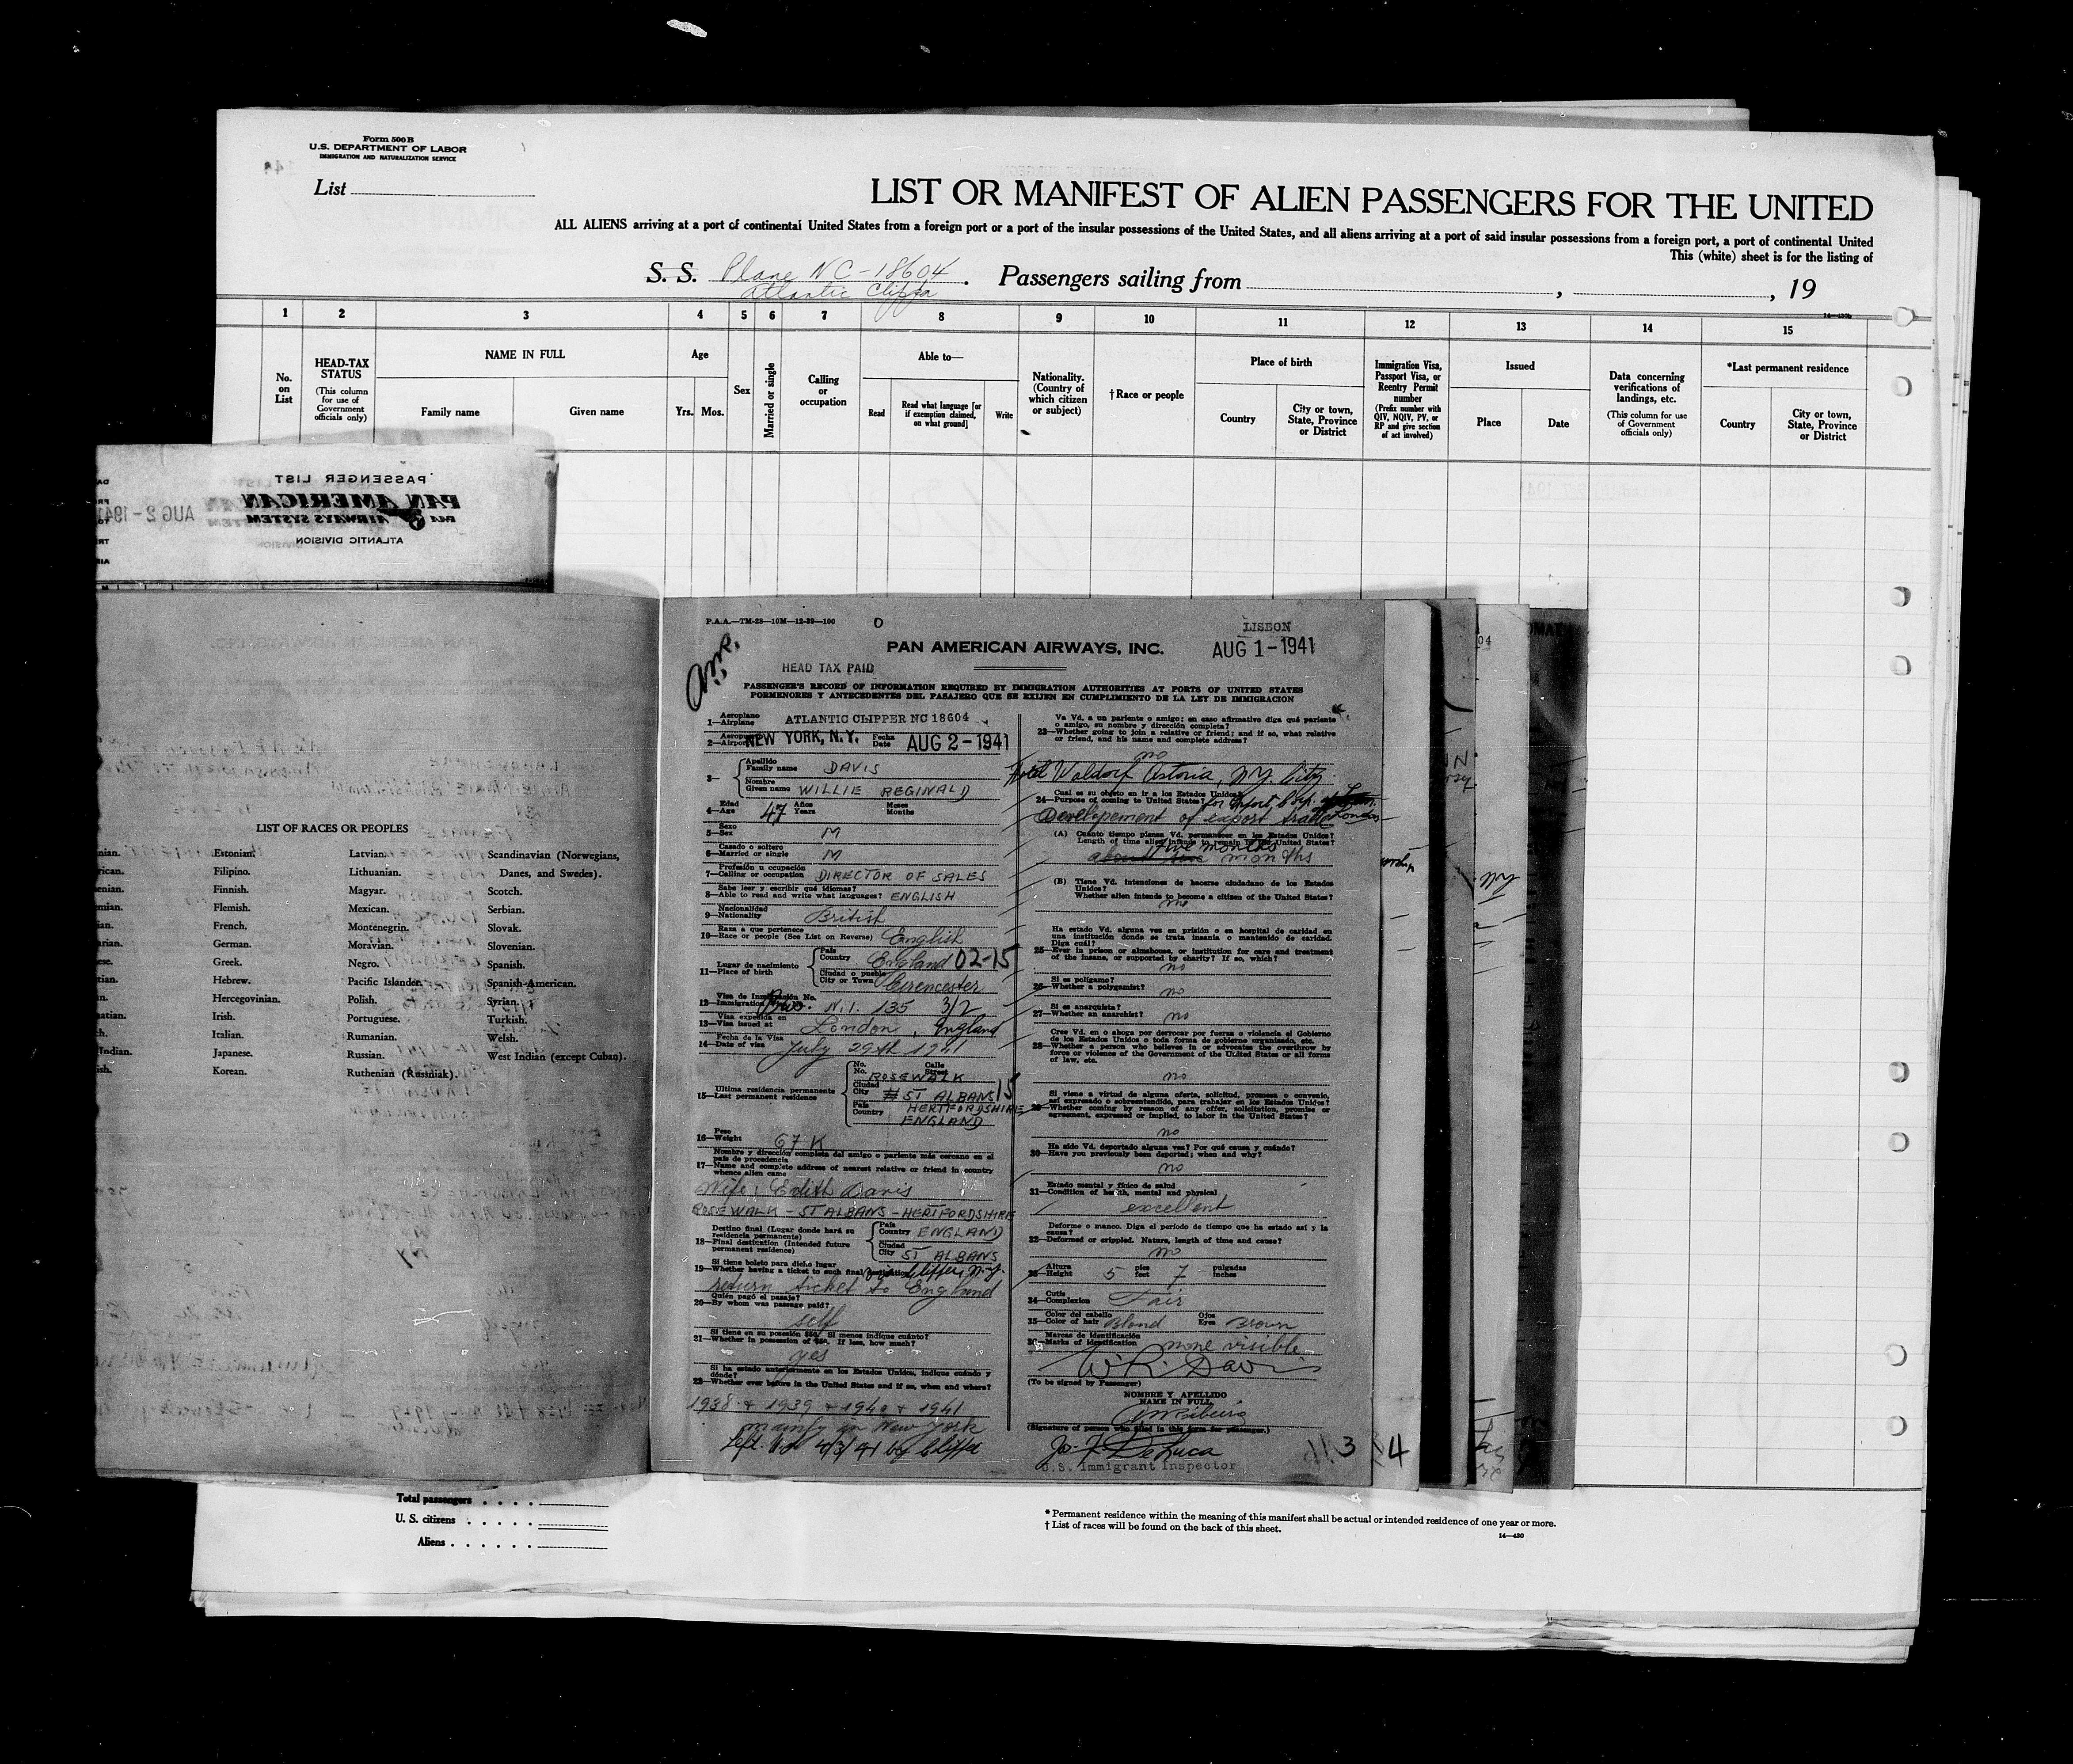 Form 500 B
U.S. DEPARTMENT OF LABOR
IMMIGRATION AND NATURALIZATION SERVICE
List
LIST OR MANIFEST OF ALIEN PASSENGERS FOR THE UNITED
ALL ALIENS arriving at a port of continental United States from a foreign port or a port of the insular possessions of the United States, and all aliens arriving at a port of said insular possessions from a foreign port, a port of continental United
This (white) sheet is for the listing of
S. S. Plane NC-18604 . Passengers sailing from , , 19
Atlantic Clipper
1 2 3 4 5 6 7 8 9 10 11 12 13 14 15
No. on List
HEAD-TAX STATUS
(This column for use of Government officials only)
NAME IN FULL
Family name Given name
Age
Yrs. Mos.
Sex
Married or single
Calling or occupation
Able to—
Read
Read what language [or if exemption claimed, on what ground]
Write
Nationality. (Country of which citizen or subject)
†Race or people
Place of birth
Country
City or town, State, Province or District
Immigration Visa, Passport Visa, or Reentry Permit number
(Prefix number with QIV, NQIV, PV, or RP and give section of act involved)
Issued
Place Date
Data concerning verifications of landings, etc.
(This column for use of Government officials only)
*Last permanent residence
Country
City or town, State, Province or District
PASSENGER LIST
PAN AMERICAN
AIRWAYS SYSTEM
ATLANTIC DIVISION
AUG 2 - 1941
LIST OF RACES OR PEOPLES
Estonian. Latvian. Scandinavian (Norwegians,
Filipino. Lithuanian. Danes, and Swedes).
Finnish. Magyar. Scotch.
Flemish. Mexican. Serbian.
French. Montenegrin. Slovak.
German. Moravian. Slovenian.
Greek. Negro. Spanish.
Hebrew. Pacific Islander. Spanish-American.
Hercegovinian. Polish. Syrian.
Irish. Portuguese. Turkish.
Italian. Rumanian. Welsh.
Japanese. Russian. West Indian (except Cuban).
Korean. Ruthenian (Russniak).
P.A.A.—TM-28—10M—12-39—100
PAN AMERICAN AIRWAYS, INC.
LISBON
AUG 1 - 1941
HEAD TAX PAID
PASSENGER'S RECORD OF INFORMATION REQUIRED BY IMMIGRATION AUTHORITIES AT PORTS OF UNITED STATES
PORMENORES Y ANTECEDENTES DEL PASAJERO QUE SE EXIJEN EN CUMPLIMIENTO DE LA LEY DE IMMIGRACION
Aeroplano
1—Airplane ATLANTIC CLIPPER NC 18604
2—Airport NEW YORK, N.Y. Fecha Date AUG 2 - 1941
3— Apellido Family name DAVIS
Nombre Given name WILLIE REGINALD
Edad
4—Age 47 Años Years Meses Months
Sexo
5—Sex M
Casado o soltero
6—Married or single M
Profesión u ocupación
7—Calling or occupation DIRECTOR OF SALES
Sabe leer y escribir qué idiomas?
8—Able to read and write what languages? ENGLISH
Nacionalidad
9—Nationality British
Raza a que pertenece
10—Race or people (See List on Reverse) English
Lugar de nacimiento
11—Place of birth País Country England 02-15
Ciudad o pueblo City or Town Cirencester
Visa de Inmigración No.
12—Immigration N.I. 135 3/2
Visa expedida en
13—Visa issued at London, England
Fecha de la Visa
14—Date of visa July 29th 1941
Ultima residencia permanente
15—Last permanent residence
No. Calle Street ROSEWALK
Ciudad City # ST ALBANS 15
País Country HERTFORDSHIRE
ENGLAND
Peso
16—Weight 67 K
Nombre y dirección completa del amigo o pariente más cercano en el país de procedencia
17—Name and complete address of nearest relative or friend in country whence alien came
Wife: Edith Davis
ROSEWALK - ST ALBANS - HERTFORDSHIRE
Destino final (Lugar donde hará su residencia permanente)
18—Final destination (Intended future permanent residence)
País Country ENGLAND
Ciudad City ST ALBANS
Si tiene boleto para dicho lugar
19—Whether having a ticket to such final destination
return ticket to England
Quién pagó el pasaje?
20—By whom was passage paid?
self
Si tiene en su posesión $50? Si menos indique cuánto?
21—Whether in possession of $50. If less, how much?
yes
Si ha estado anteriormente en los Estados Unidos, indique cuándo y dónde?
22—Whether ever before in the United States and if so, when and where?
1938 + 1939 + 1940 + 1941
mainly in New York
Left 4/3/41 by Clipper
Va Vd. a un pariente o amigo; en caso afirmativo diga qué pariente o amigo, su nombre y dirección completa?
23—Whether going to join a relative or friend; and if so, what relative or friend, and his name and complete address?
no
Hotel Waldorf Astoria, N.Y. City
Cual es su objeto en ir a los Estados Unidos?
24—Purpose of coming to United States?
Developement of export trade London
(A) Cuánto tiempo piensa Vd. permanecer en los Estados Unidos?
Length of time alien intends to remain in the United States?
months
(B) Tiene Vd. intenciones de hacerse ciudadano de los Estados Unidos?
Whether alien intends to become a citizen of the United States?
no
Ha estado Vd. alguna vez en prisión o en hospital de caridad en una institución donde se trata insania o mantenido de caridad. Diga cuál?
25—Ever in prison or almshouse, or institution for care and treatment of the insane, or supported by charity? If so, which?
no
Si es polígamo?
26—Whether a polygamist? no
Si es anarquista?
27—Whether an anarchist? no
Cree Vd. en o aboga por derrocar por fuerza o violencia el Gobierno de los Estados Unidos o toda forma de gobierno organizado, etc.
28—Whether a person who believes in or advocates the overthrow by force or violence of the Government of the United States or all forms of law, etc.
no
Si viene a virtud de alguna oferta, solicitud, promesa o convenio, así expresado o sobreentendido, para trabajar en los Estados Unidos?
29—Whether coming by reason of any offer, solicitation, promise or agreement, expressed or implied, to labor in the United States?
no
Ha sido Vd. deportado alguna vez? Por qué causa y cuándo?
30—Have you previously been deported; when and why?
no
Estado mental y físico de salud
31—Condition of health, mental and physical
excellent
Deforme o manco. Diga el período de tiempo que ha estado así y la causa?
32—Deformed or crippled. Nature, length of time and cause?
no
Altura
33—Height 5 pies feet 7 pulgadas inches
Cutis
34—Complexion Fair
Color del cabello Ojos
35—Color of hair Blond Eyes Brown
Marcas de identificación
36—Marks of identification none visible
W. R. Davis
(To be signed by Passenger)
NOMBRE Y APELLIDO
NAME IN FULL
(Signature of person who filled in this form for passenger.)
Jo. F. DeLuca
U.S. Immigrant Inspector
3 4
Total passengers
U. S. citizens
Aliens
* Permanent residence within the meaning of this manifest shall be actual or intended residence of one year or more.
† List of races will be found on the back of this sheet.
14—430